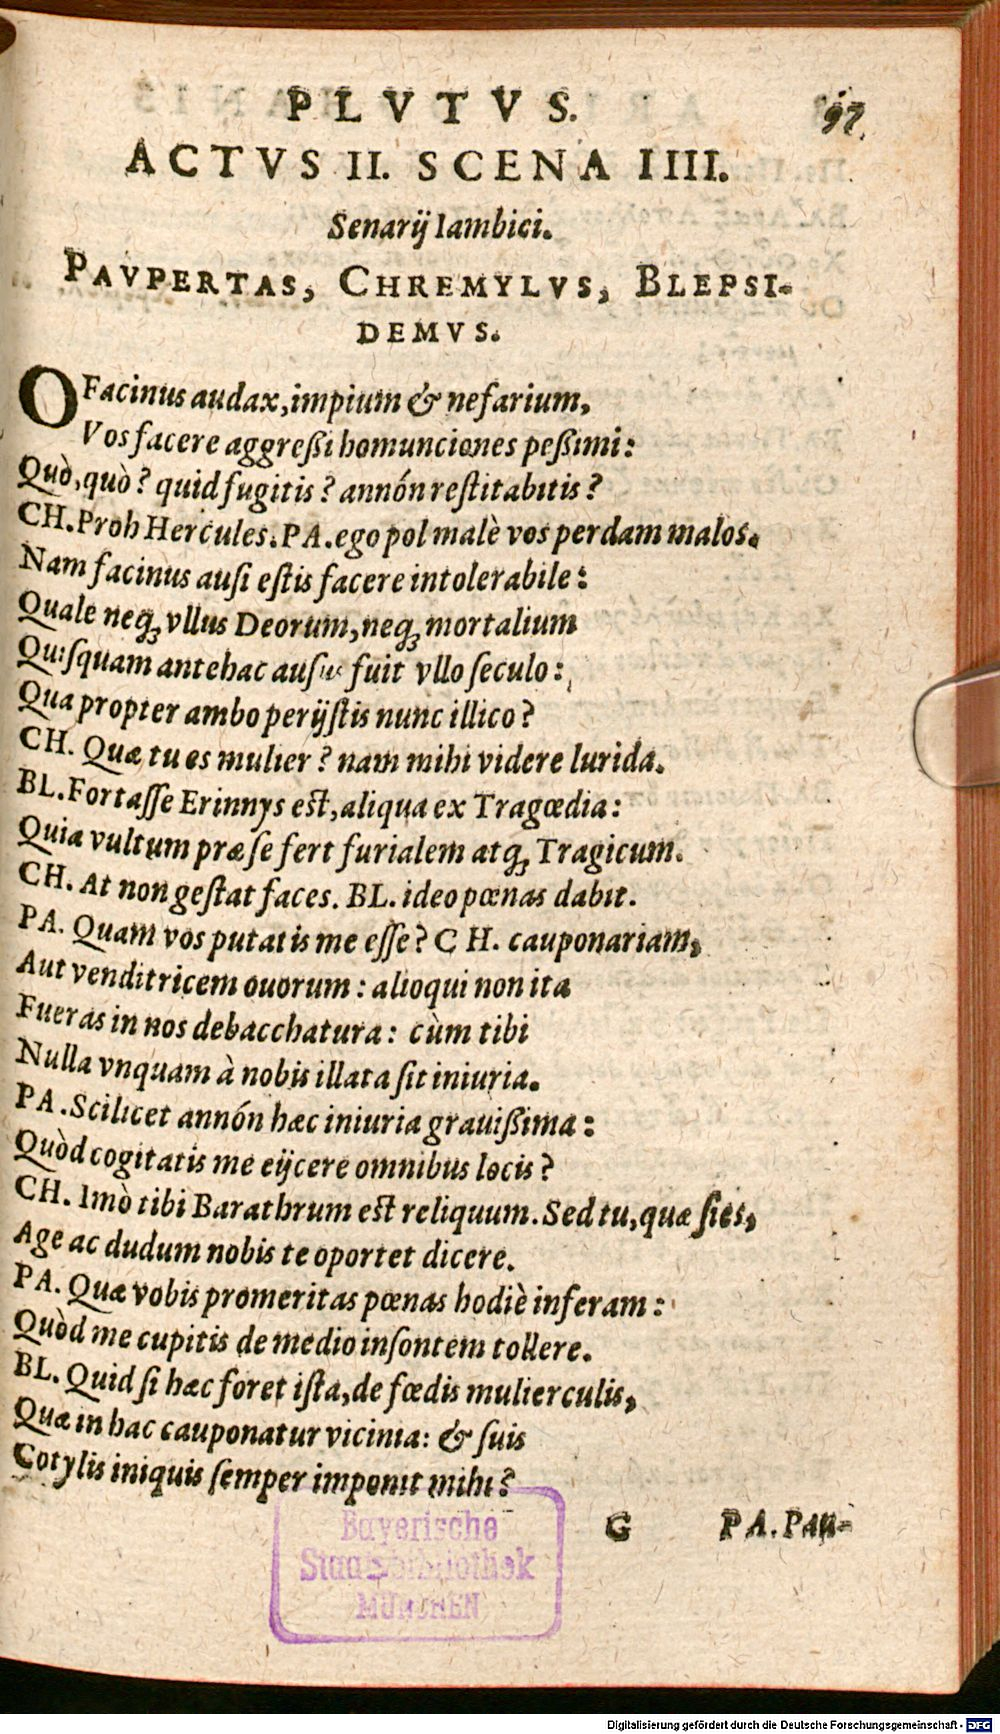 PLVTVS.
97.
ACTVS II. SCENA IIII.
Senarij Iambici.
PAVPERTAS, CHREMYLVS, BLEPSI-
DEMVS.
O Facinus audax, impium & nefarium,
Vos facere aggreßi homunciones peßimi:
Quò, quò? quid fugitis? annón reſtitabitis?
CH. Proh Hercules. PA. ego pol malè vos perdam malos.
Nam facinus auſi eſtis facere intolerabile:
Quale neqꝫ vllus Deorum, neqꝫ mortalium
Quiſquam antehac auſus fuit vllo ſeculo:
Qua propter ambo perijſtis nunc illico?
CH. Quæ tu es mulier? nam mihi videre lurida.
BL. Fortaſſe Erinnys eſt, aliqua ex Tragœdia:
Quia vultum præ ſe fert furialem atqꝫ Tragicum.
CH. At non geſtat faces. BL. ideo pœnas dabit.
PA. Quam vos putatis me eſſe? CH. cauponariam,
Aut venditricem ouorum: alioqui non ita
Fueras in nos debacchatura: cùm tibi
Nulla vnquam à nobis illata ſit iniuria.
PA. Scilicet annón hæc iniuria grauißima:
Quòd cogitatis me eijcere omnibus locis?
CH. Imò tibi Barathrum eſt reliquum. Sed tu, quæ ſies,
Age ac dudum nobis te oportet dicere.
PA. Quæ vobis promeritas pœnas hodiè inferam:
Quòd me cupitis de medio inſontem tollere.
BL. Quid ſi hæc foret iſta, de fœdis mulierculis,
Quæ in hac cauponatur vicinia: & ſuis
Cotylis iniquis ſemper imponit mihi?
G PA. Pau-
Bayerische
Staatsbibliothek
MÜNCHEN
Digitalisierung gefördert durch die Deutsche Forschungsgemeinschaft - DFG